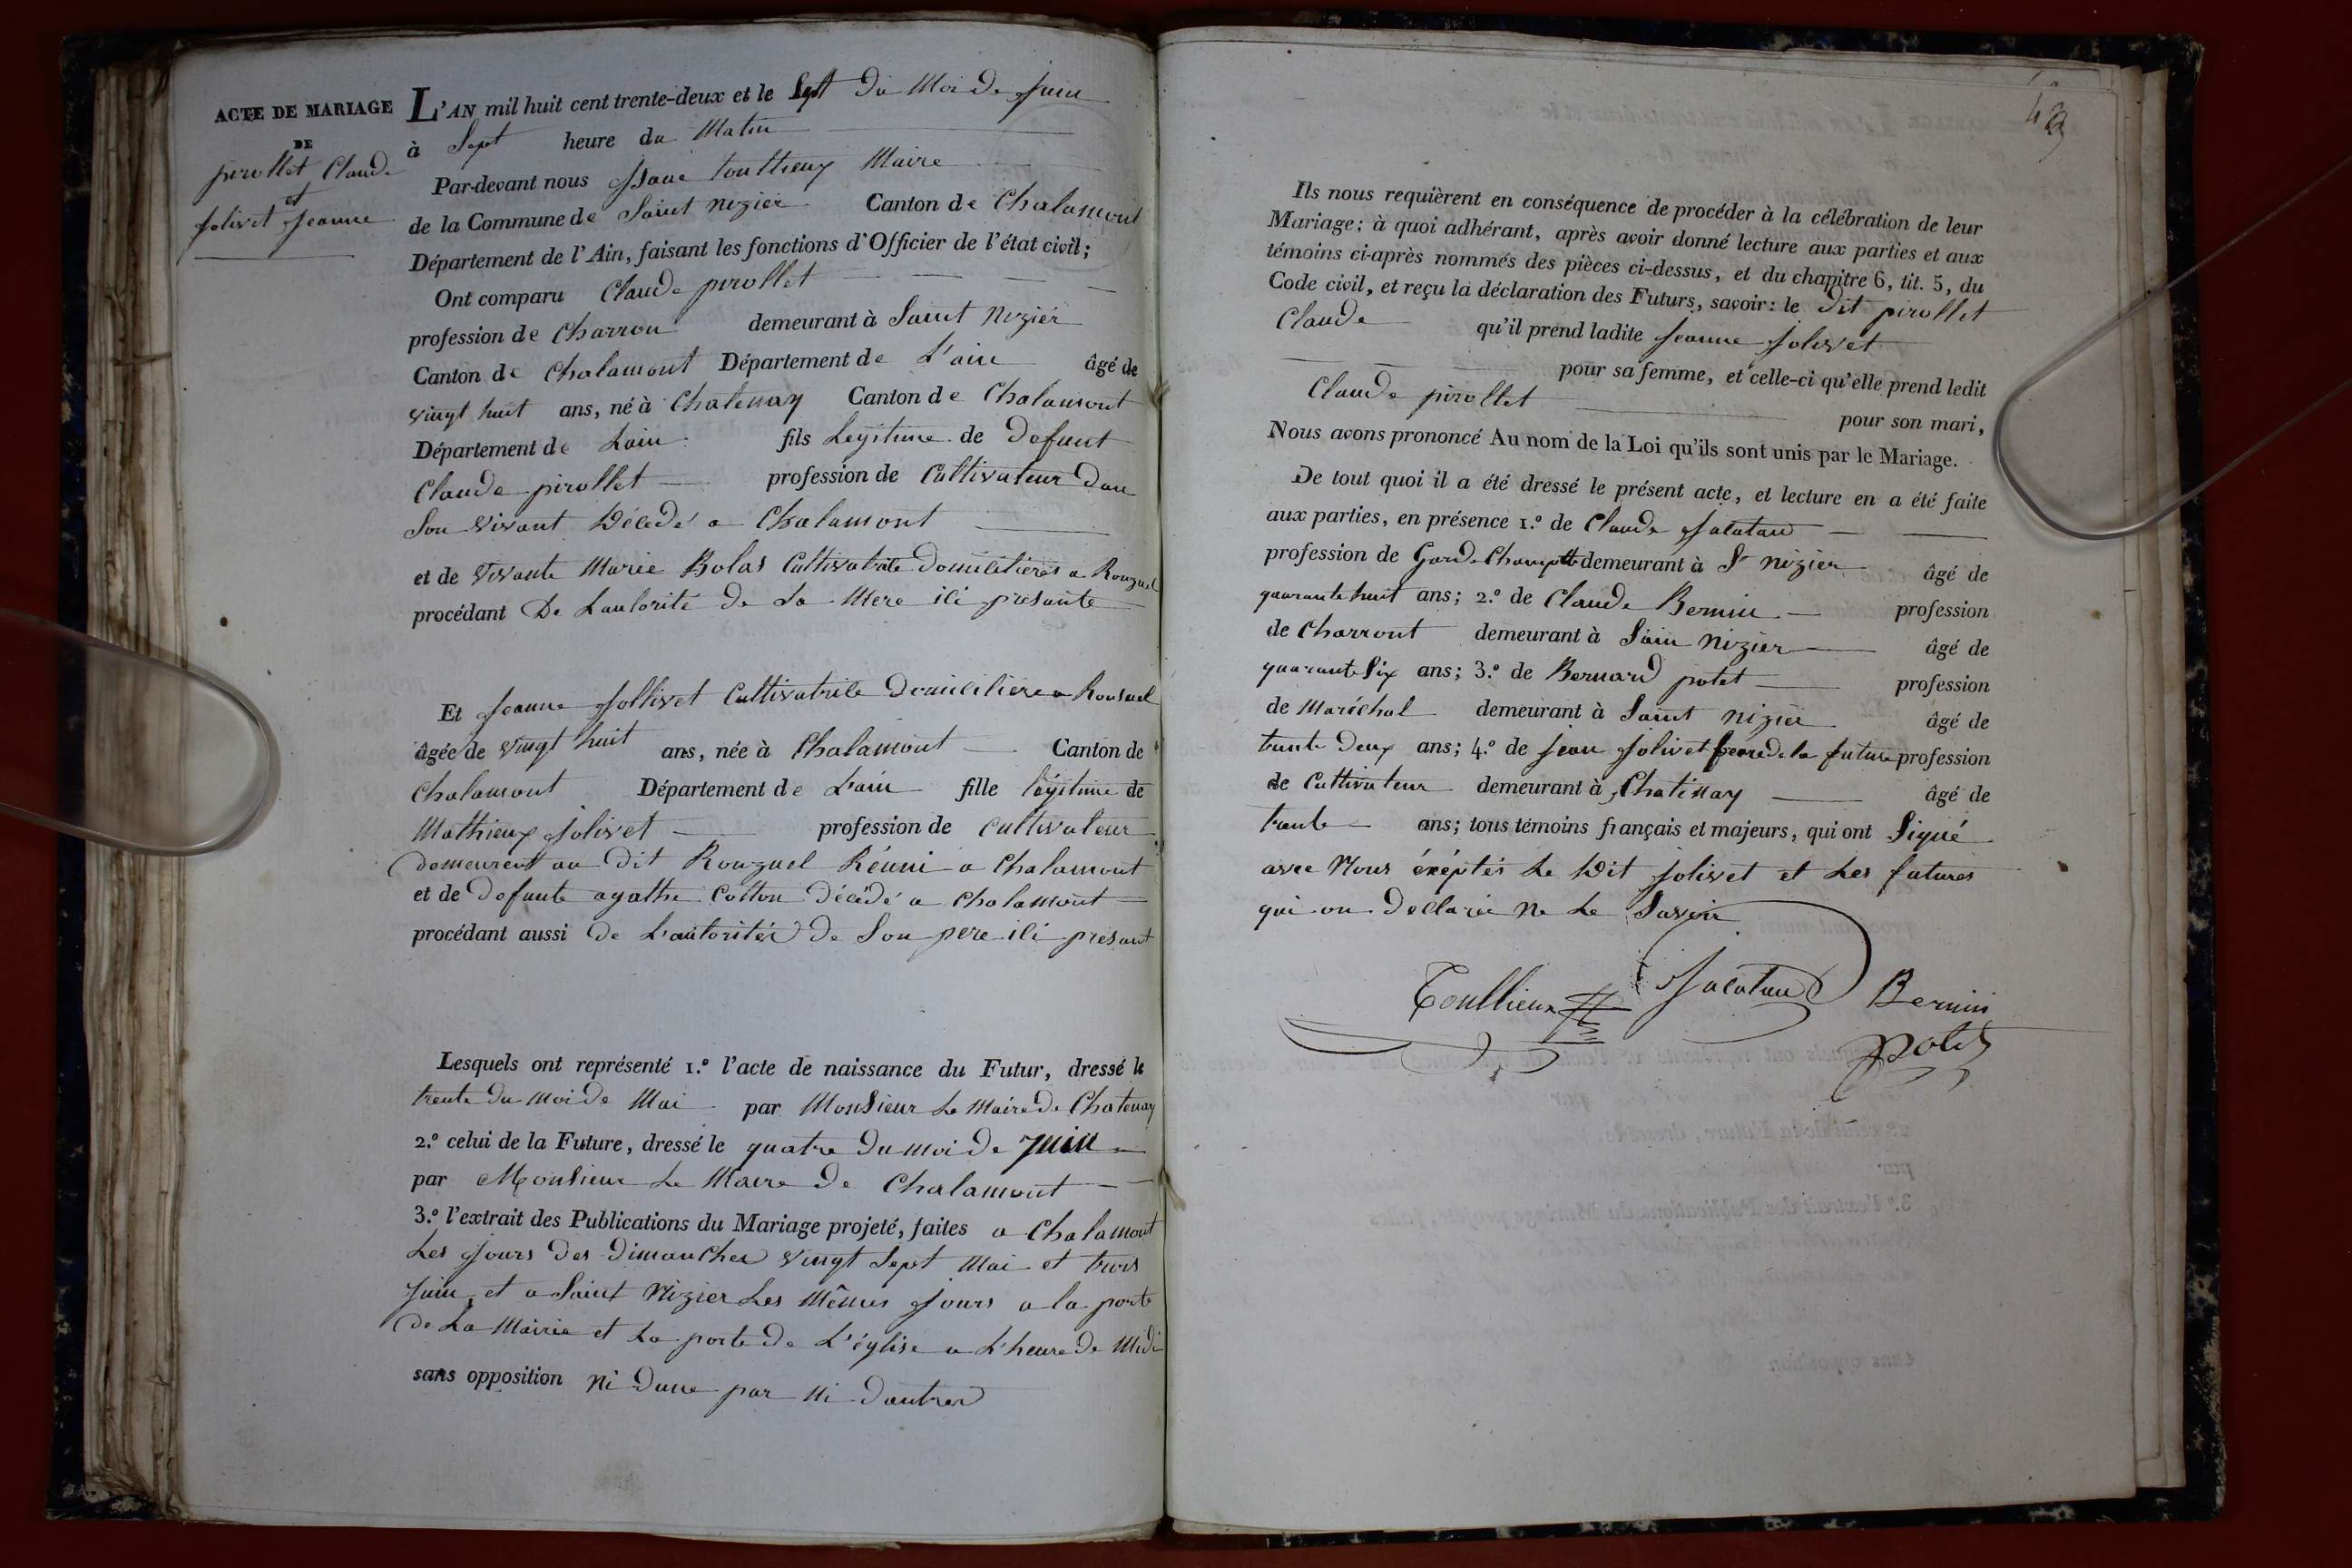 ACTE DE MARIAGE
DE
pirollet Claude
et
jolivet Jeanne
L'AN mil huit cent trente-deux et le Sept du Moi de Juin
à Sept heure du Matin
Par-devant nous Maire
de la Commune de Saint nizier Canton de Chalamont
Département de l'Ain, faisant les fonctions d'Officier de l'état civil;
Ont comparu Claude pirollet
profession de Charron demeurant à Saint Nizier
Canton de Chalamont Département de L'ain âgé de
vingt huit ans, né à Chatenay Canton de Chalamont
Département de Lain fils Legitime de defunt
Claude pirollet profession de Cultivateur dan
Son vivant Décedé a Chalamont
et de vivante Marie Bolas Cultivatrice Domicilieres a Ronzuel
procédant De Lautorité de La Mere ici présante
Et Jeanne Jollivet Cultivatrile Domiciliere a Ronsuel
âgée de vingt huit ans, née à Chalamont Canton de
Chalamont Département de L'ain fille légitime de
Mathieux Jolivet profession de Cultivateur
demeurent au dit Ronzuel Réuni a Chalamont
et de defunte agathe Cotton décédé a Chalamont
procédant aussi de L'autoritér de Son pere ili présant
Lesquels ont représenté 1.º l'acte de naissance du Futur, dressé le
trente du moi de Mai par Monsieur Le Maire de Chatenay
2.º celui de la Future, dressé le quatre du moi de juin
par Monsieur Le Maire de Chalamont
3.º l'extrait des Publications du Mariage projeté, faites a Chalamont
Les Jours des dimanches vingt Sept Mai et trois
Juin, et a Saint Nizier Les Mêmes Jours a la porte
de La Mairie et La porte de L'église a L'heure de Midi
sans opposition Ni dune par Ni dautres
Ils nous requièrent en conséquence de procéder à la célébration de leur
Mariage; à quoi adhérant, après avoir donné lecture aux parties et aux
témoins ci-après nommés des pièces ci-dessus, et du chapitre 6, tit. 5, du
Code civil, et reçu la déclaration des Futurs, savoir: le dit pirollet
Claude qu'il prend ladite Jeanne Jolivet
pour sa femme, et celle-ci qu'elle prend ledit
Claude pirollet pour son mari,
Nous avons prononcé Au nom de la Loi qu'ils sont unis par le Mariage.
De tout quoi il a été dressé le présent acte, et lecture en a été faite
aux parties, en présence 1.º de Claude Jacataud
profession de Garde Champette demeurant à St nizier âgé de
quarante huit ans; 2.º de Claude Bernin profession
de Charront demeurant à Sain Nizier âgé de
quarante Six ans; 3.º de Bernard potet profession
de Maréchal demeurant à Saint Nizier âgé de
trente deux ans; 4.º de jean Jolivet frere de la future profession
de Cultivateur demeurant à Chatenay âgé de
trente ans; tous témoins français et majeurs, qui ont Signé
avec Nous éxéptés Le Dit jolivet et Les futures
qui on Declarée Ne Le Savoir
Toullieux Jacataud Bernin
potet